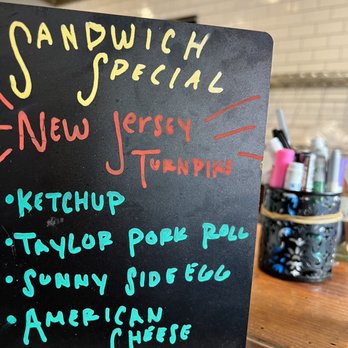 SANDWICH
SPECIAL
NEW JERSEY
TURNPIKE
•KETCHUP
•TAYLOR PORK ROLL
•SUNNY SIDE EGG
•AMERICAN
CHEESE